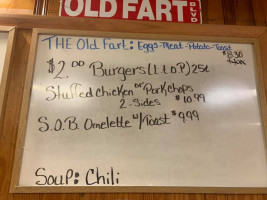 OLD FART BLVD
THE Old Fart: Eggs-Meat-Potato-Toast
$8.30
$2.00 Burgers (L.T.O.P) 25¢
Stuffed Chicken or Pork Chops
2-Sides $10.99
S.O.B. Omelette w/Toast $9.99
Soup: Chili